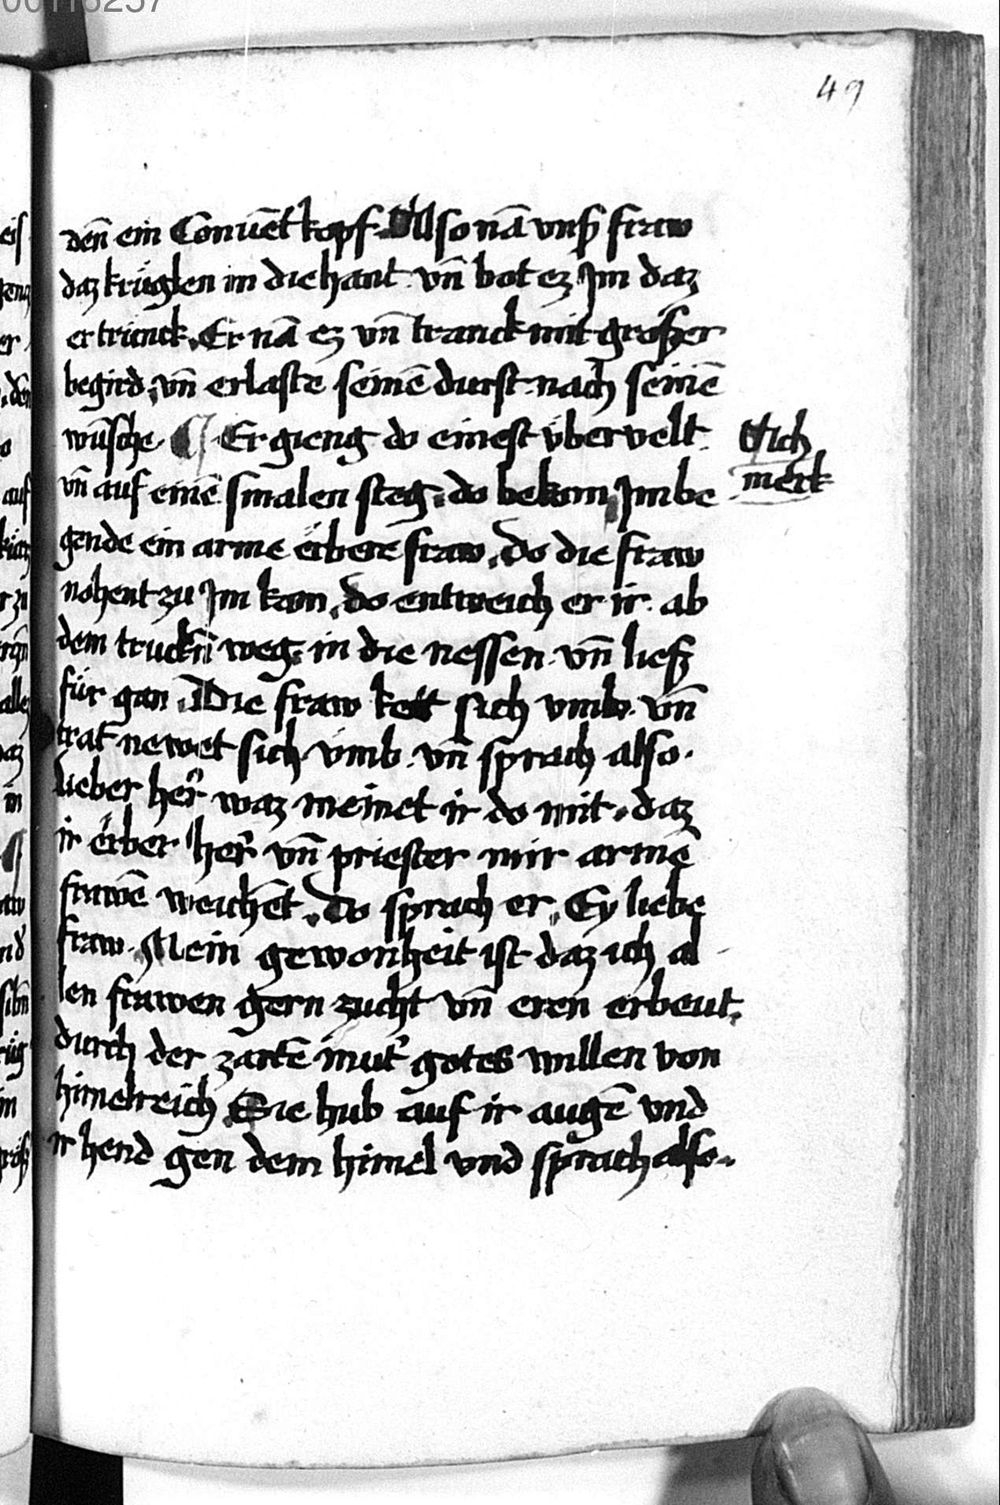 49
den̄ ein Conuēt kopf. Also nā vnß fraw
daz krüglen in die hant. vn̄ bot ez Jm daz
er trinck. Er nā ez vn̄ tranck mit großer
begird. vn̄ erlaste seinē durst. nach seinē
wūsche. Er gieng do einest v̈ber velt.
vn̄ auf einē smalen steg. do bekom Jm be
gende ein arme erbere fraw. do die fraw
nohent zu Jm kam. do entweich er ir. ab
dem truckn̄ weg. in die nessen. vn̄ ließ
für gan. Die fraw kett sich vmb. vn̄
trat sich vmb. vn̄ sprach also.
lieber her̄ waz meinet ir do mit. daz
ir erber her̄ vn̄ priester mir armē
frawē weichēt. Do sprach er. Ey liebe
fraw. Mein gewonheit ist daz ich al
len frawen gern zucht vn̄ eren erbeut.
durch der zartē mut' gotes willen von
himelreich. Sie hub auf ir augē vnd
ir hend gen dem himel vnd sprach also.
merk